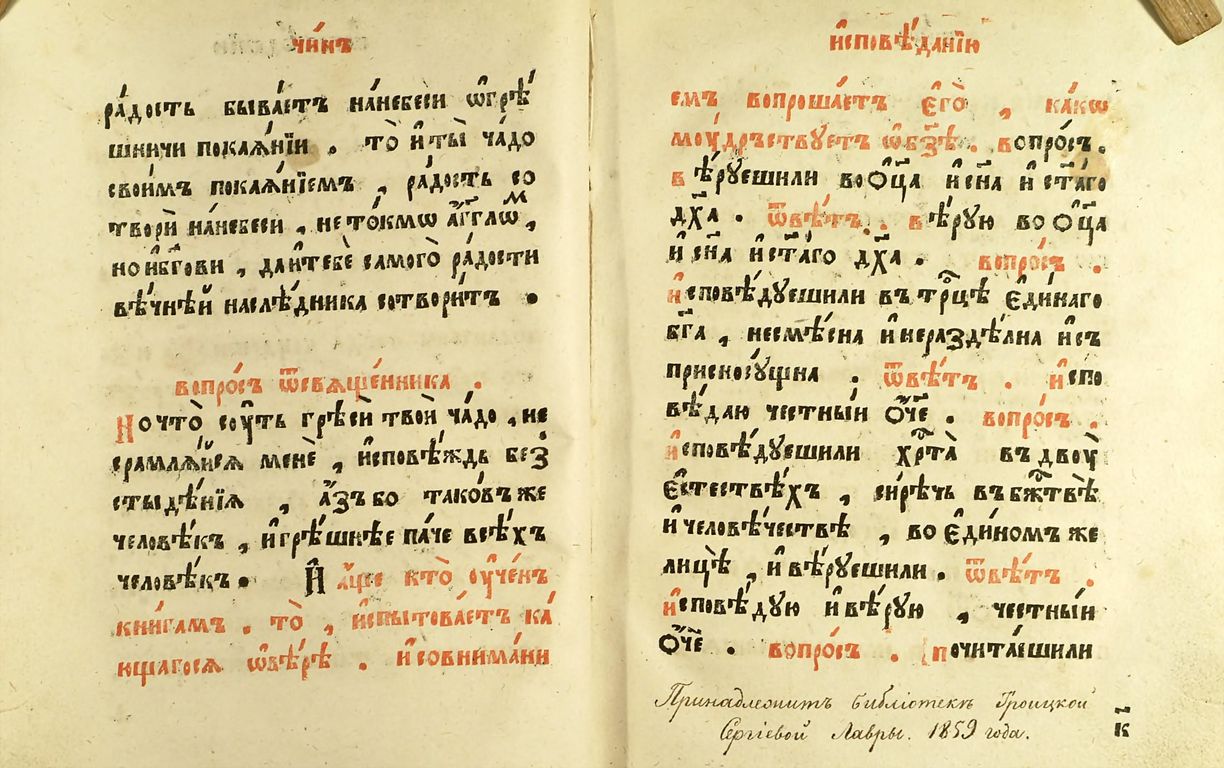 чи́нъ
ра́дость быва́етъ на́небеси ѡ҆грѣ́
шничи покаѧ́нїи . то̀ и҆ ты̀ ча́до
свои́мъ покаѧ́нїемъ , ра́дость со
твори̇̀ на́небеси , не то́кмѡ а҆́гг҃лѡⷨ ,
но и҆бг҃ови , да и҆тебѐ самого̀ ра́дости
вѣ́чнѣй наслѣ́дника сотвори́тъ .
вопро́съ ѿсвѧще́нника .
Но что̀ сꙋ́ть грѣси̇̀ твои̇̀ ча́до , не
срамлѧ́йсѧ менѐ , и҆сповѣ́ждь беⷥ
стыдѣ́нїѧ , а҆́зъ бо тако́въ же
человѣ́къ , и҆ грѣ́шнѣе па́че всѣ́хъ
человѣ́къ . И҆ а҆́ще кто̀ ᲂу҆че́нъ
кни́гамъ . то̀ , и҆спытова́етъ ка́
ющагосѧ ѡ҆вѣ́рѣ . и҆ совнима́ни
и҆сповѣ́данїю
емъ вопроша́етъ є҆го̀ , ка́кѡ
моу́дръствꙋетъ ѡ҆бз҃ѣ . вопро́съ .
вѣ́рꙋешили во Ѻц҃а и҆ сн҃а и҆ ст҃а́го
дх҃а . ѿвѣ́тъ . вѣ́рꙋю во Ѻц҃а
и҆ сн҃а и҆ ст҃а́го дх҃а . вопро́съ .
и҆сповѣ́дꙋешили въ трⷪ҇цѣ є҆ди́наго
бг҃а , несмѣ́сна и҆ нераздѣ́лна и҆ съ
присносу́щна . ѿвѣ́тъ . и҆спо
вѣ́даю честны́й Ѻ҆́ч҃е . вопро́съ .
и҆сповѣ́дꙋешили хрⷭ҇та̀ въ двоу̀
є҆стествѣ́хъ , си́рѣчь въ бжⷭ҇твѣ̀
и҆ человѣ́чествѣ , во є҆ди́номъ же
лицѣ̀ , и҆ вѣ́рꙋешили . ѿвѣ́тъ .
и҆сповѣ́дꙋю и҆ вѣ́рꙋю , честны́й
Ѻ҆́ч҃е . вопро́съ . почита́ешили
Принадлежитъ библіотекѣ Троицкой
Сергіевой Лавры. 1859 года.
к҃